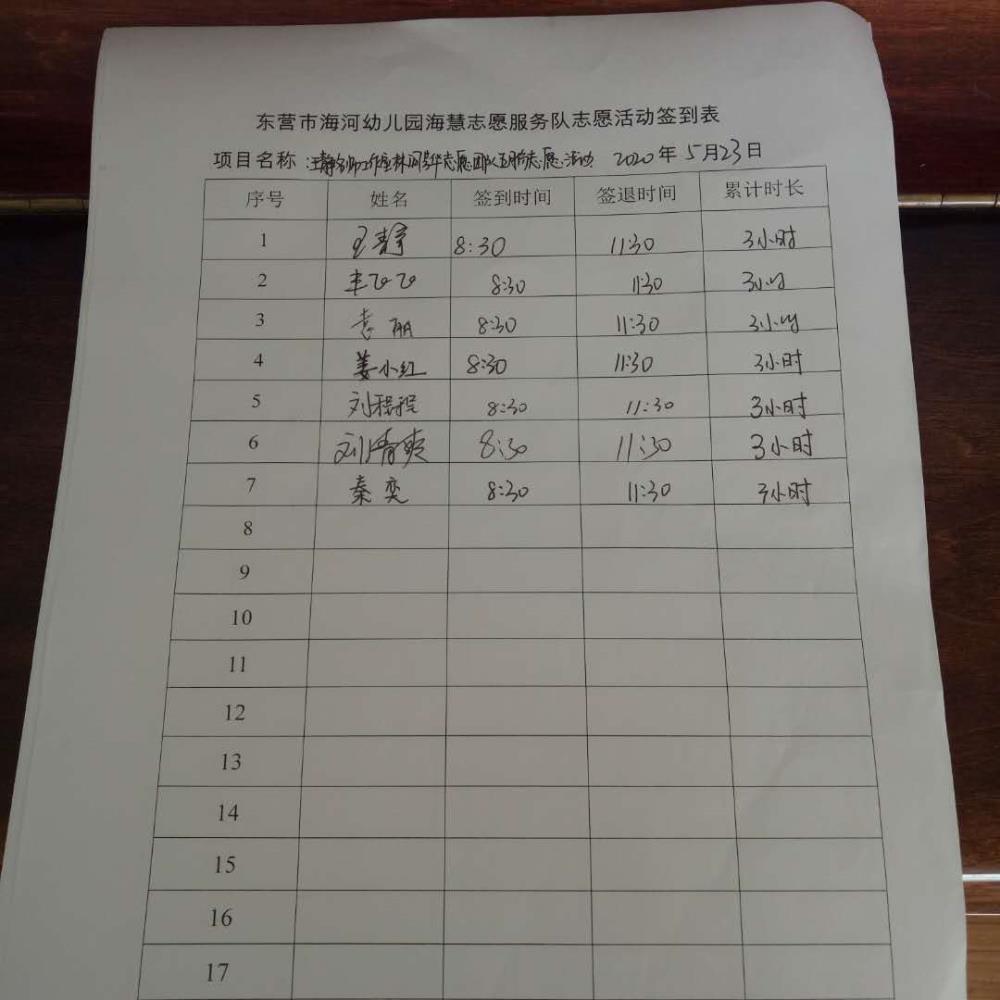 东营市海河幼儿园海慧志愿服务队志愿活动签到表
项目名称：王静名师工作室林 志愿团队 志愿活动 2020年5月23日
序号 姓名 签到时间 签退时间 累计时长
1 王静 8:30 11:30 3小时
2 丰飞飞 8:30 11:30 3小时
3 袁丽 8:30 11:30 3小时
4 姜小红 8:30 11:30 3小时
5 刘程程 8:30 11:30 3小时
6 刘清爽 8:30 11:30 3小时
7 秦奕 8:30 11:30 3小时
8
9
10
11
12
13
14
15
16
17